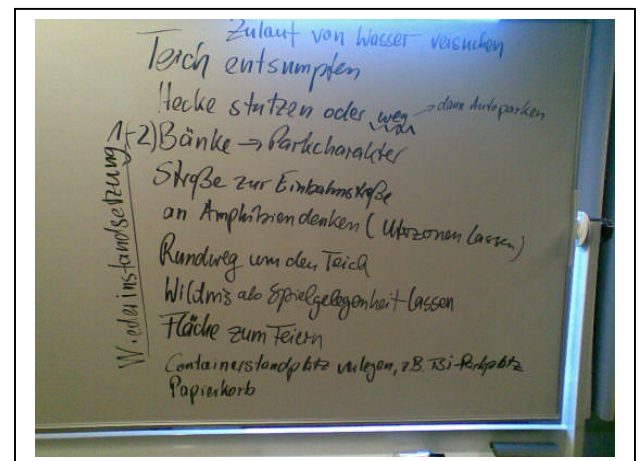 Zulauf von Wasser versuchen
Teich entsumpfen
Hecke stutzen oder weg → dann Autoparken
1(-2) Bänke → Parkcharakter
Straße zur Einbahnstraße
an Amphibien denken (Uferzonen lassen)
Rundweg um den Teich
Wildnis als Spielgelegenheit lassen
Fläche zum Feiern
Containerstandplatz verlegen, z.B. -Parkplatz
Papierkorb
Wiederinstandsetzung